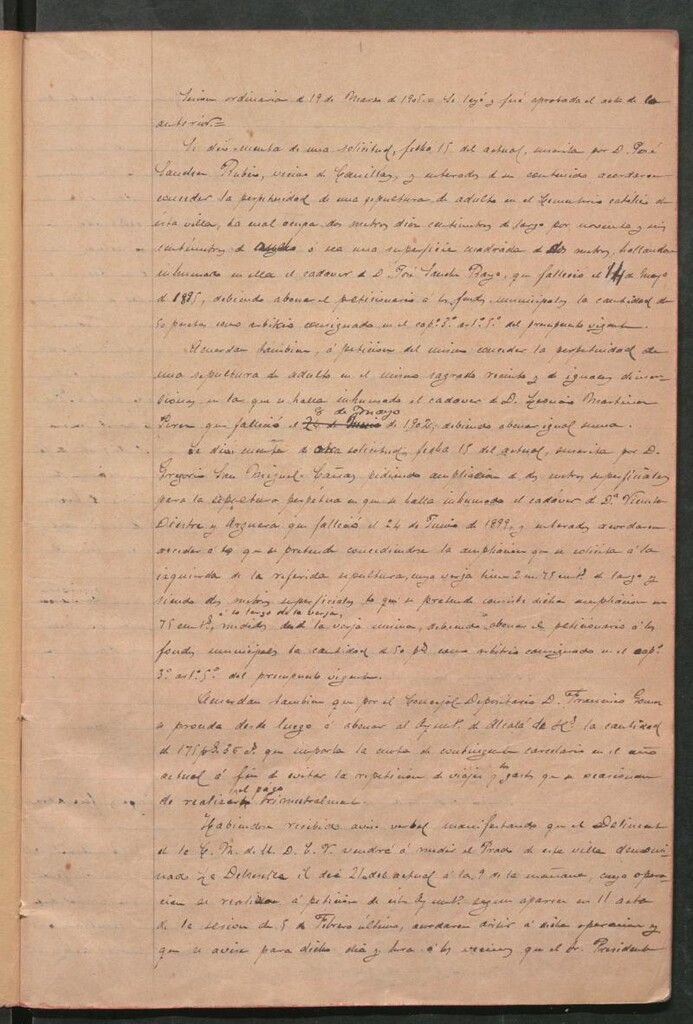 Sesion ordinaria d 19 de Marzo d 1905.= Se leyó y fué aprobada el acta de la
anterior.=
Se dió cuenta de una solicitud, fecha 15 del actual, suscrita por D. José
Sanchez Rubio, vecino de Canillas, y enterados d su contenido acordaron
conceder la perpetuidad de una sepultura de adulto en el Cementerio católico de
esta villa, la cual ocupa dos metros diez centimetros de largo por noventa y seis
centimetros de ancho ó sea una superficie cuadrada de dos metros, hallandose
inhumado en ella el cadaver de D. José Sancho Rayo, que falleció el 14 de Mayo
de 1895, debiendo abonar el peticionario á los fondos municipales la cantidad de
50 pesetas como arbitrio consignado en el cap.º 3.º art.º 5.º del presupuesto vigente.
Acuerdan tambien, á peticion del mismo conceder la perpetuidad de
una sepultura de adulto en el mismo sagrado recinto y de iguales dimen-
siones en la que se halla inhumado el cadaver de D. Martinez
8 de Mayo
Perez que falleció el 26 de Junio de 1902, debiendo abonar igual suma.
Se dió cuenta de otra solicitud, fecha 15 del actual, suscrita por D.
Gregorio San Miguel Cañas pidiendo ampliacion de dos metros superficiales
para la sepultura perpetua en que se halla inhumado el cadáver de D.ª Vicenta
Diestre y Azguera que falleció el 24 de Junio de 1899, y enterados acordaron
acceder á lo que se pretende concediendose la ampliacion que se solicita á la
izquierda de la referida sepultura, cuya verja tiene 2 m. 75 cent.ˢ de largo y
siendo dos metros superficiales lo que se pretende consiste dicha ampliacion en
á lo largo de la verja,
75 cent.ˢ, medidos desde la verja misma, debiendo abonar el peticionario á los
fondos municipales la cantidad de 50 p.ˢ como arbitrio consignado en el cap.º
3.º art.º 5.º del presupuesto vigente.
Acuerdan tambien que por el Concejal Depositario D. Francisco Gomez
se proceda desde luego á abonar al Ayunt.º de Alcalá de H.ˢ la cantidad
de 175 p.ˢ 35 c.ˢ que importa la cuota de contingente carcelario en el año
actual á fin de evitar la repeticion de viajes y los gastos que se ocasionan
el pago
de realizar trimestralmente.
Habiendose recibido aviso verbal manifestando que el Delineante
de la C. M. d. U. D. C. V. vendrá á medir el Prado de esta villa denomi-
nado La Dehesilla el dia 21 del actual á las 9 de la mañana, cuya opera-
cion se realiza á peticion de este Ayunt.º segun aparece en el acta
de la sesion de 5 de Febrero último, acordaron asistir á dicha operacion y
que se avise para dicho dia y hora á los vecinos que el Sr. Presidente